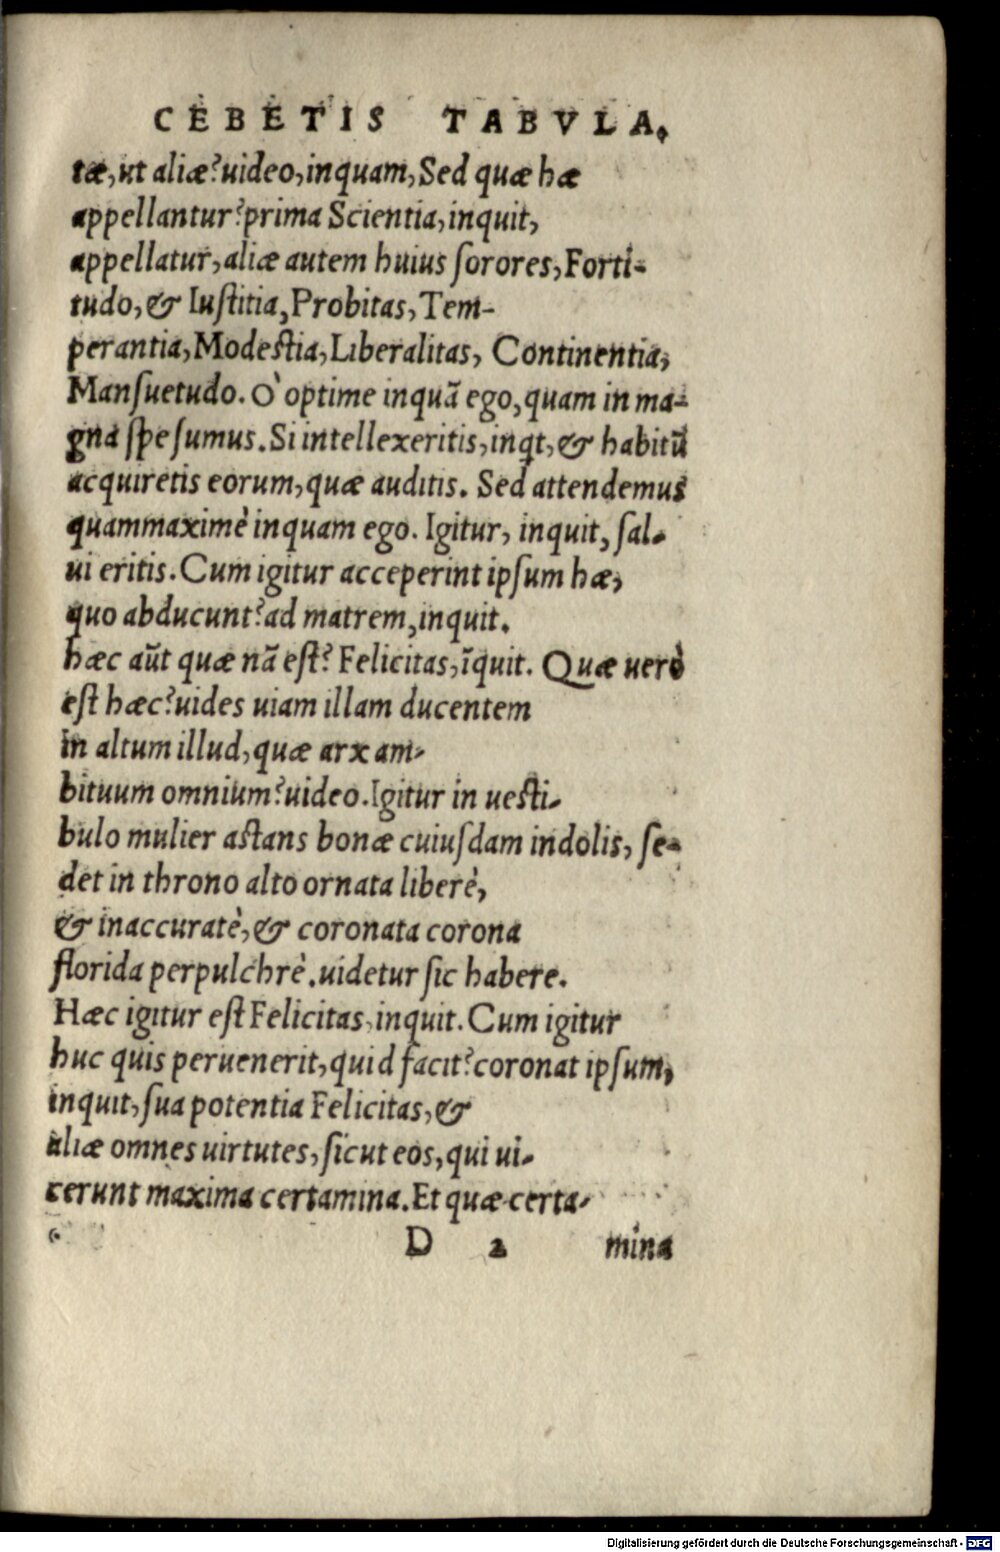 CEBETIS TABVLA.
tæ, ut aliæ? uideo, inquam, Sed quæ hæ
appellantur? prima Scientia, inquit,
appellatur, aliæ autem huius ſorores, Forti-
tudo, & Iuſtitia, Probitas, Tem-
perantia, Modeſtia, Liberalitas, Continentia,
Manſuetudo. Ò optime inquã ego, quam in ma-
gna ſpe ſumus. Si intellexeritis, inqt, & habitũ
acquiretis eorum, quæ auditis. Sed attendemus
quammaximè inquam ego. Igitur, inquit, ſal-
ui eritis. Cum igitur acceperint ipſum hæ,
quo abducunt? ad matrem, inquit.
hæc aũt quæ nã eſt? Felicitas, ĩquit. Quæ uerò
eſt hæc? uides uiam illam ducentem
in altum illud, quæ arx am-
bituum omnium? uideo. Igitur in ueſti-
bulo mulier aſtans bonæ cuiuſdam indolis, ſe-
det in throno alto ornata liberè,
& inaccuratè, & coronata corona
florida perpulchrè. uidetur ſic habere.
Hæc igitur eſt Felicitas, inquit. Cum igitur
huc quis peruenerit, quid facit? coronat ipſum,
inquit, ſua potentia Felicitas, &
aliæ omnes uirtutes, ſicut eos, qui ui-
cerunt maxima certamina. Et quæ certa-
D 2 mina
Digitalisierung gefördert durch die Deutsche Forschungsgemeinschaft - DFG